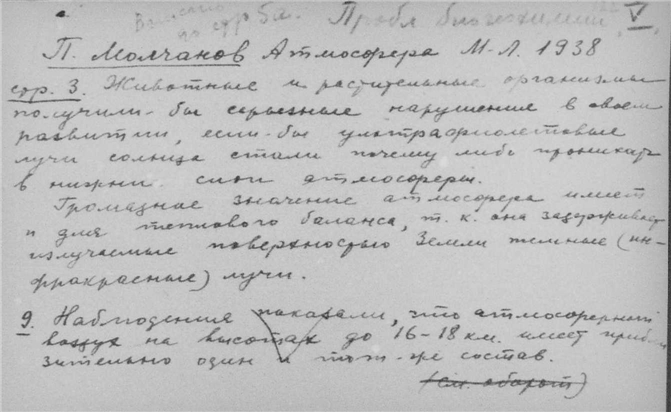 Выписано
до стр 5а. Пробл биогеохимии V.
П. Молчанов Атмосфера М-Л. 1938
стр. 3. Животные и растительные организмы
получили-бы серьезные нарушение в своем
развитии, если-бы ультрафиолетовые
лучи солнца стали почему либо проникать
в нижни слои атмосферы.
Громадное значение атмосфера имеет
и для теплового баланса, т.к. она задерживает
излучаемые поверхностью Земли темные (ин-
фракрасные) лучи.
9. Наблюдения показали, что атмосферный
воздух на высотах до 16-18 км. имеет прибли
зительно один и тот-же состав.
(см. оборот)